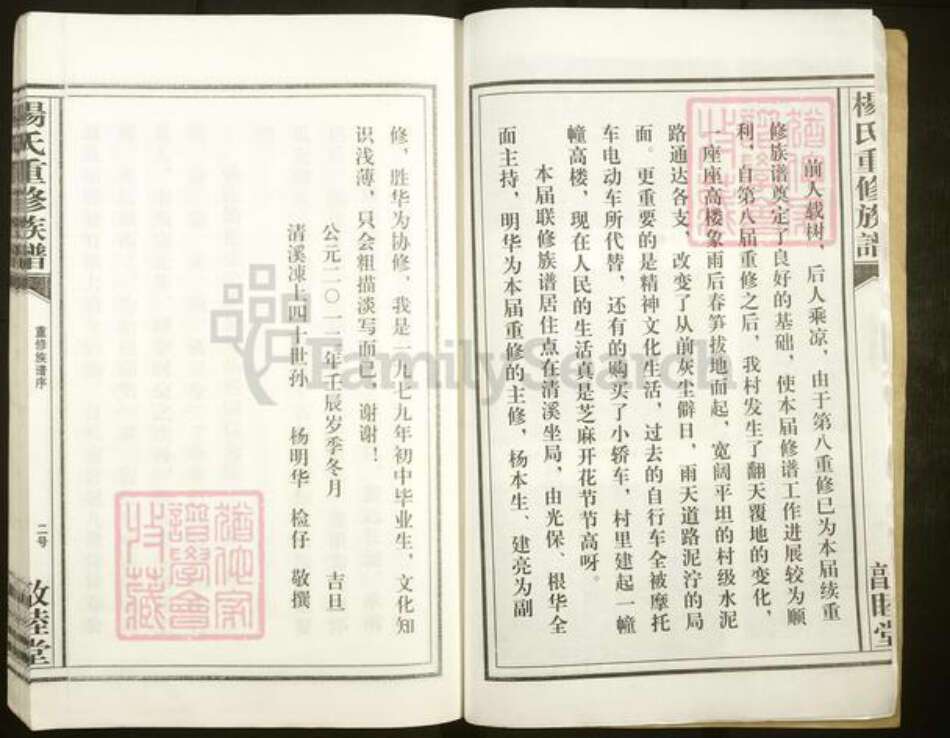 楊氏重修族譜
前人载树，后人乘凉，由于第八重修已为本届续重
修族谱奠定了良好的基础，使本届修谱工作进展较为顺
利，自第八届重修之后，我村发生了翻天覆地的变化，
一座座高楼象雨后春笋拔地面起，宽阔平坦的村级水泥
路通达各支，改变了从前灰尘僻日，雨天道路泥泞的局
面。更重要的是精神文化生活，过去的自行车全被摩托
车电动车所代替，还有的购买了小轿车，村里建起一幢
幢高楼，现在人民的生活真是芝麻开花节节高呀。
本届联修族谱居住点在清溪坐局，由光保、根华全
面主持，明华为本届重修的主修，杨本生、建亮为副
修，胜华为协修，我是一九七九年初中毕业生，文化知
识浅薄，只会粗描淡写而已，谢谢！
公元二〇一二年壬辰岁季冬月 吉旦
清溪凍上四十世孙 杨明华 检仔 敬撰
楊氏重修族譜
重修族谱序
二号
敦睦堂
猶他家
譜學會
收藏
FamilySearch